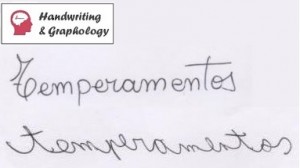 Handwriting
& Graphology
Temperamentos
temperamentos